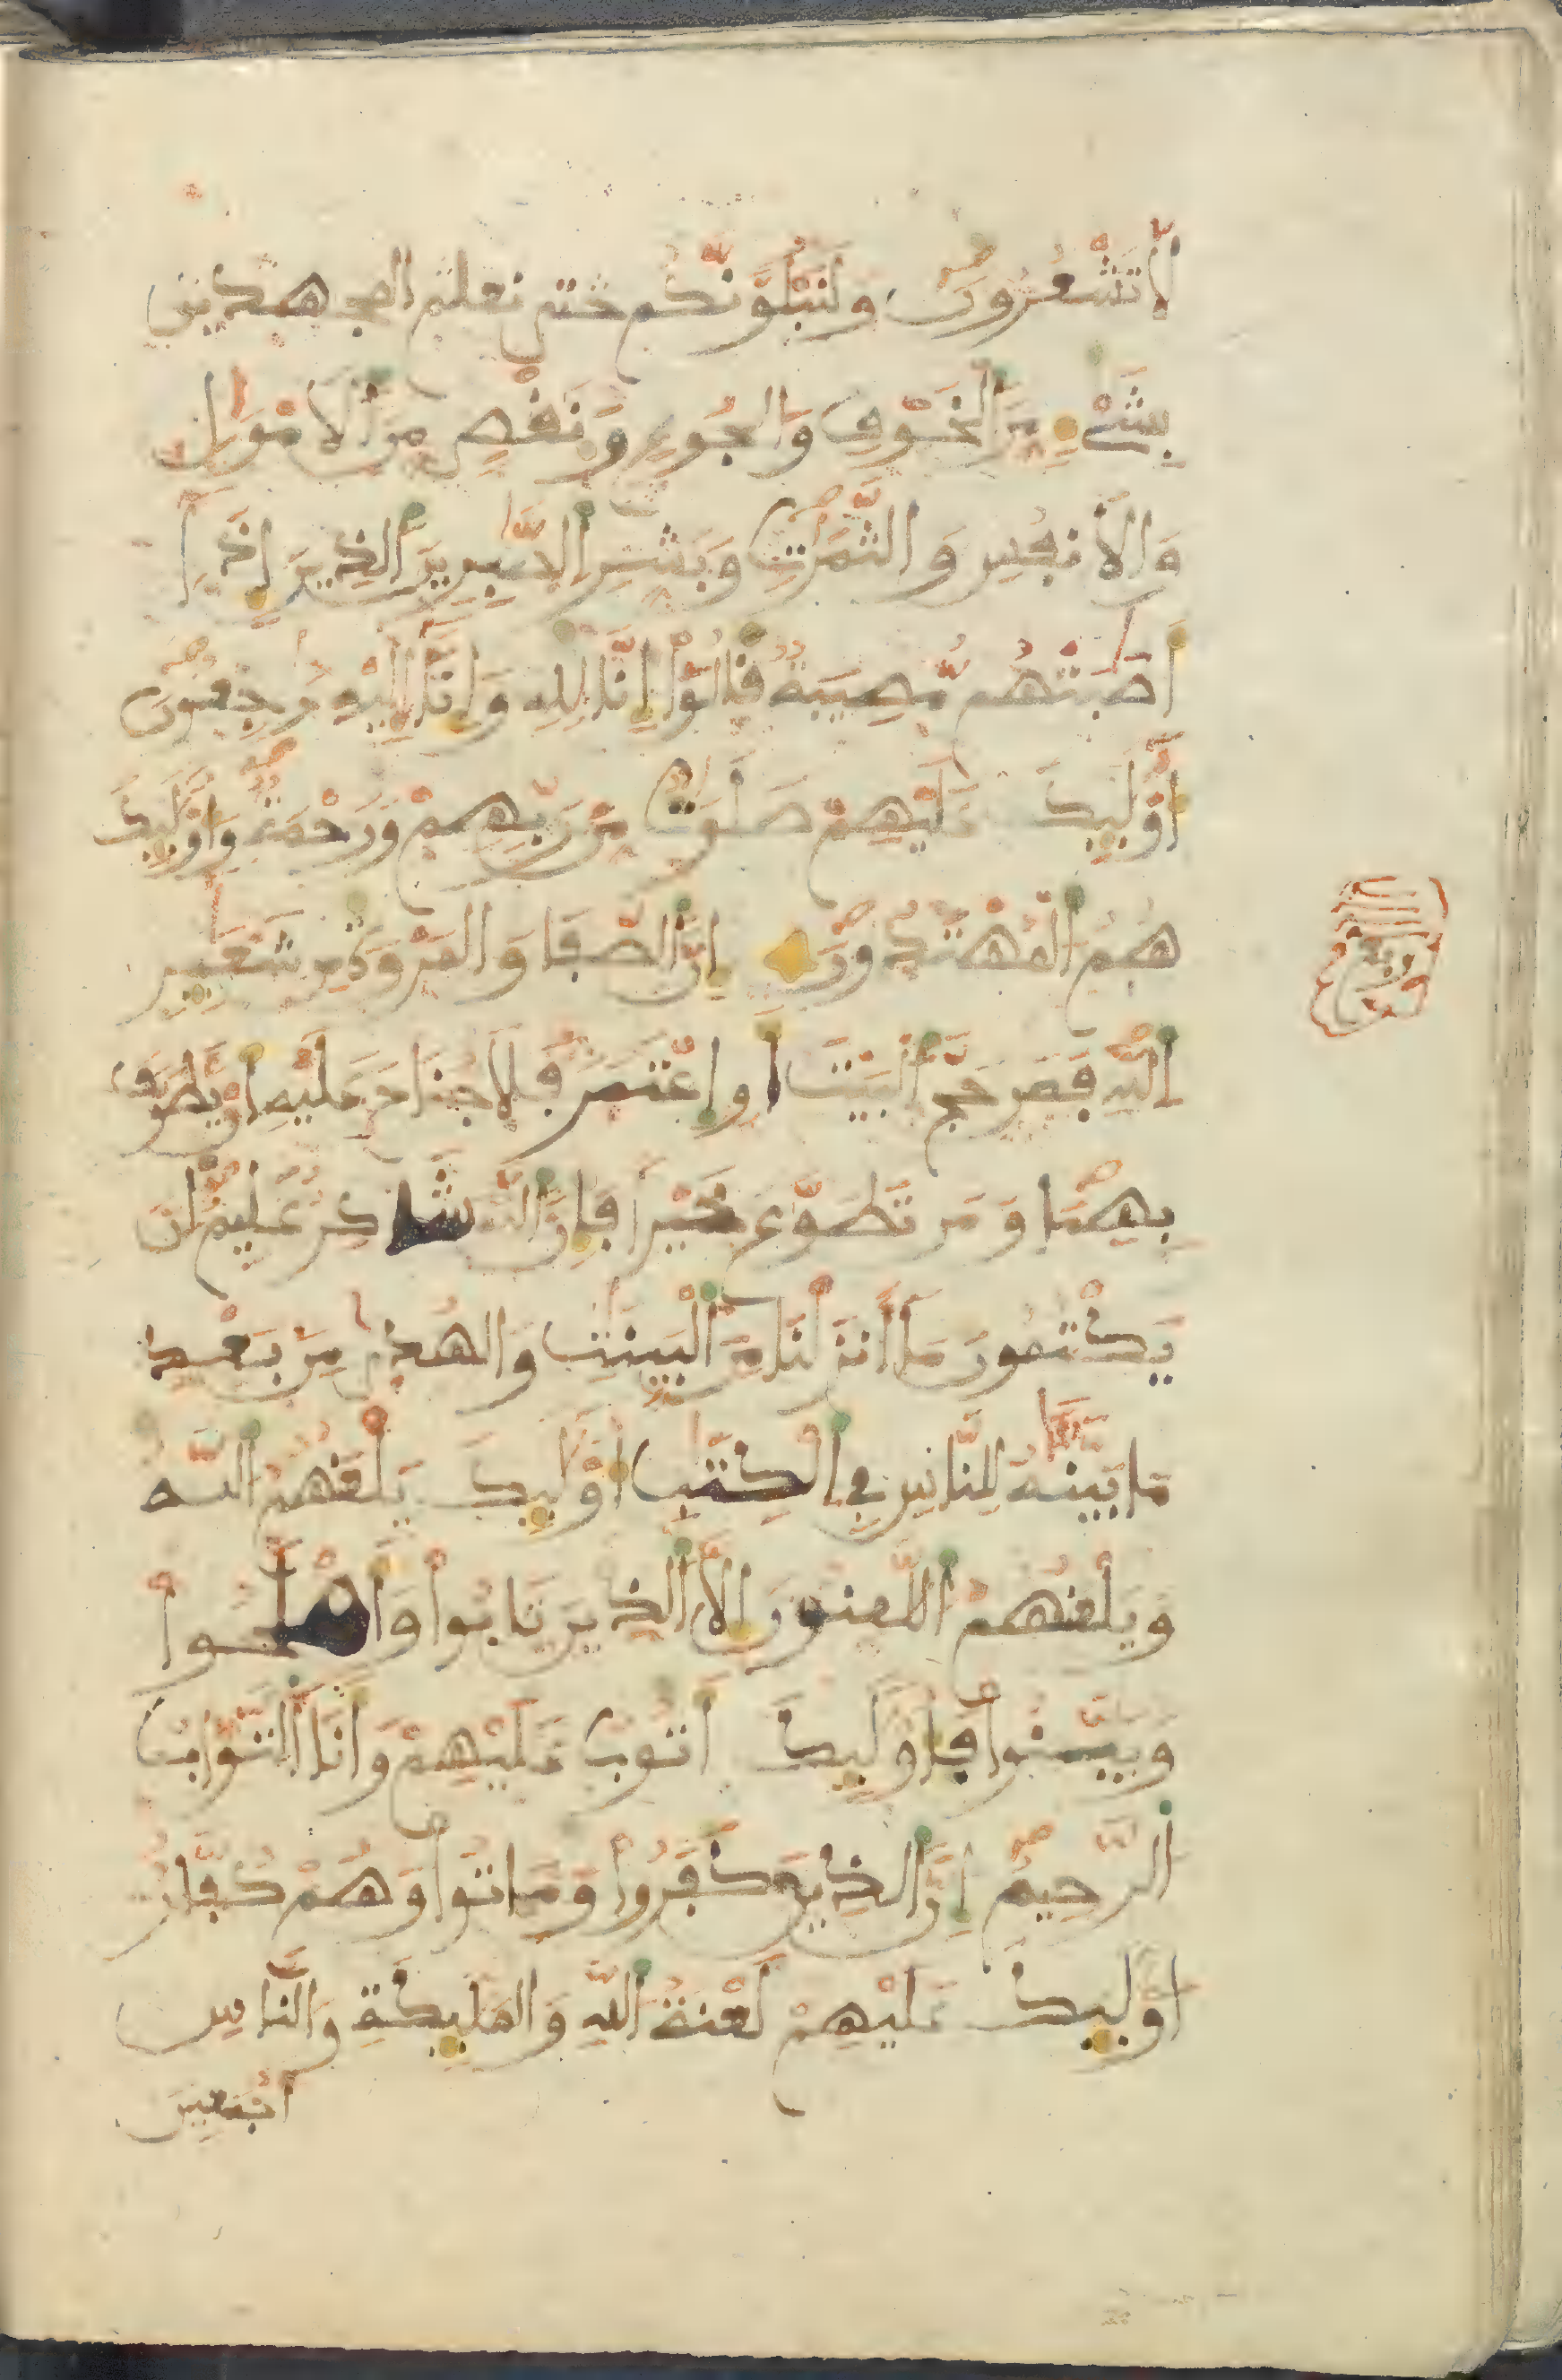 لَّا تَشْعُرُونَ وَلَنَبْلُوَنَّكُم حتى نعلم المجهدين
بِشَےْءٍ مِّنَ اَلْخَوْفِ وَالْجُوعِ وَنَقْصٍ مِّنَ اَلَامْوَٰلِ
وَالَانفُسِ وَالثَّمَرَٰتِ وَبَشِّرِ اِلصَّٰبِرِينَ اَلذِينَ إِذَآ
أَصَٰبَتْهُم مُّصِيبَةٌ قَالُوٓاْ إِنَّا لِلهِ وَإِنَّآ إِلَيْهِ رَٰجِعُونَ
أُوْلَٰٓئِكَ عَلَيْهِمْ صَلَوَٰتٌ مِّن رَّبِّهِمْ وَرَحْمَةٌ وَأُوْلَٰٓئِكَ
هُمُ اُلْمُهْتَدُونَ إِنَّ اَلصَّفَا وَالْمَرْوَةَ مِن شَعَٰٓئِرِ
ربع
اِللَّهِ فَمَنْ حَجَّ اَلْبَيْتَ أَوِ اِعْتَمَرَ فَلَا جُنَاحَ عَلَيْهِ أَنْ يَّطَّوَّفَ
بِهِمَا وَمَن تَطَوَّعَ خَيْراً فَإِنَّ اَللَّهَ شَاكِرٌ عَلِيمٌ إن الذين
يَكْتُمُونَ مَآ أَنزَلْنَا مِنَ اَلْبَيِّنَٰتِ وَالْهُدَىٰ مِنۢ بَعْدِ
مَا بَيَّنَّٰهُ لِلنَّاسِ فِي اِلْكِتَٰبِ أُوْلَٰٓئِكَ يَلْعَنُهُمُ اُللَّهُ
وَيَلْعَنُهُمُ اُللَّٰعِنُونَ إِلَّا اَلذِينَ تَابُواْ وَأَصْلَحُواْ
وَبَيَّنُواْ فَأُوْلَٰٓئِكَ أَتُوبُ عَلَيْهِمْ وَأَنَا اَلتَّوَّابُ
اُلرَّحِيمُ إِنَّ اَلذِينَ كَفَرُواْ وَمَاتُواْ وَهُمْ كُفَّارٌ
أُوْلَٰٓئِكَ عَلَيْهِمْ لَعْنَةُ اُللَّهِ وَالْمَلَٰٓئِكَةِ وَالنَّاسِ
أَجْمَعِينَ